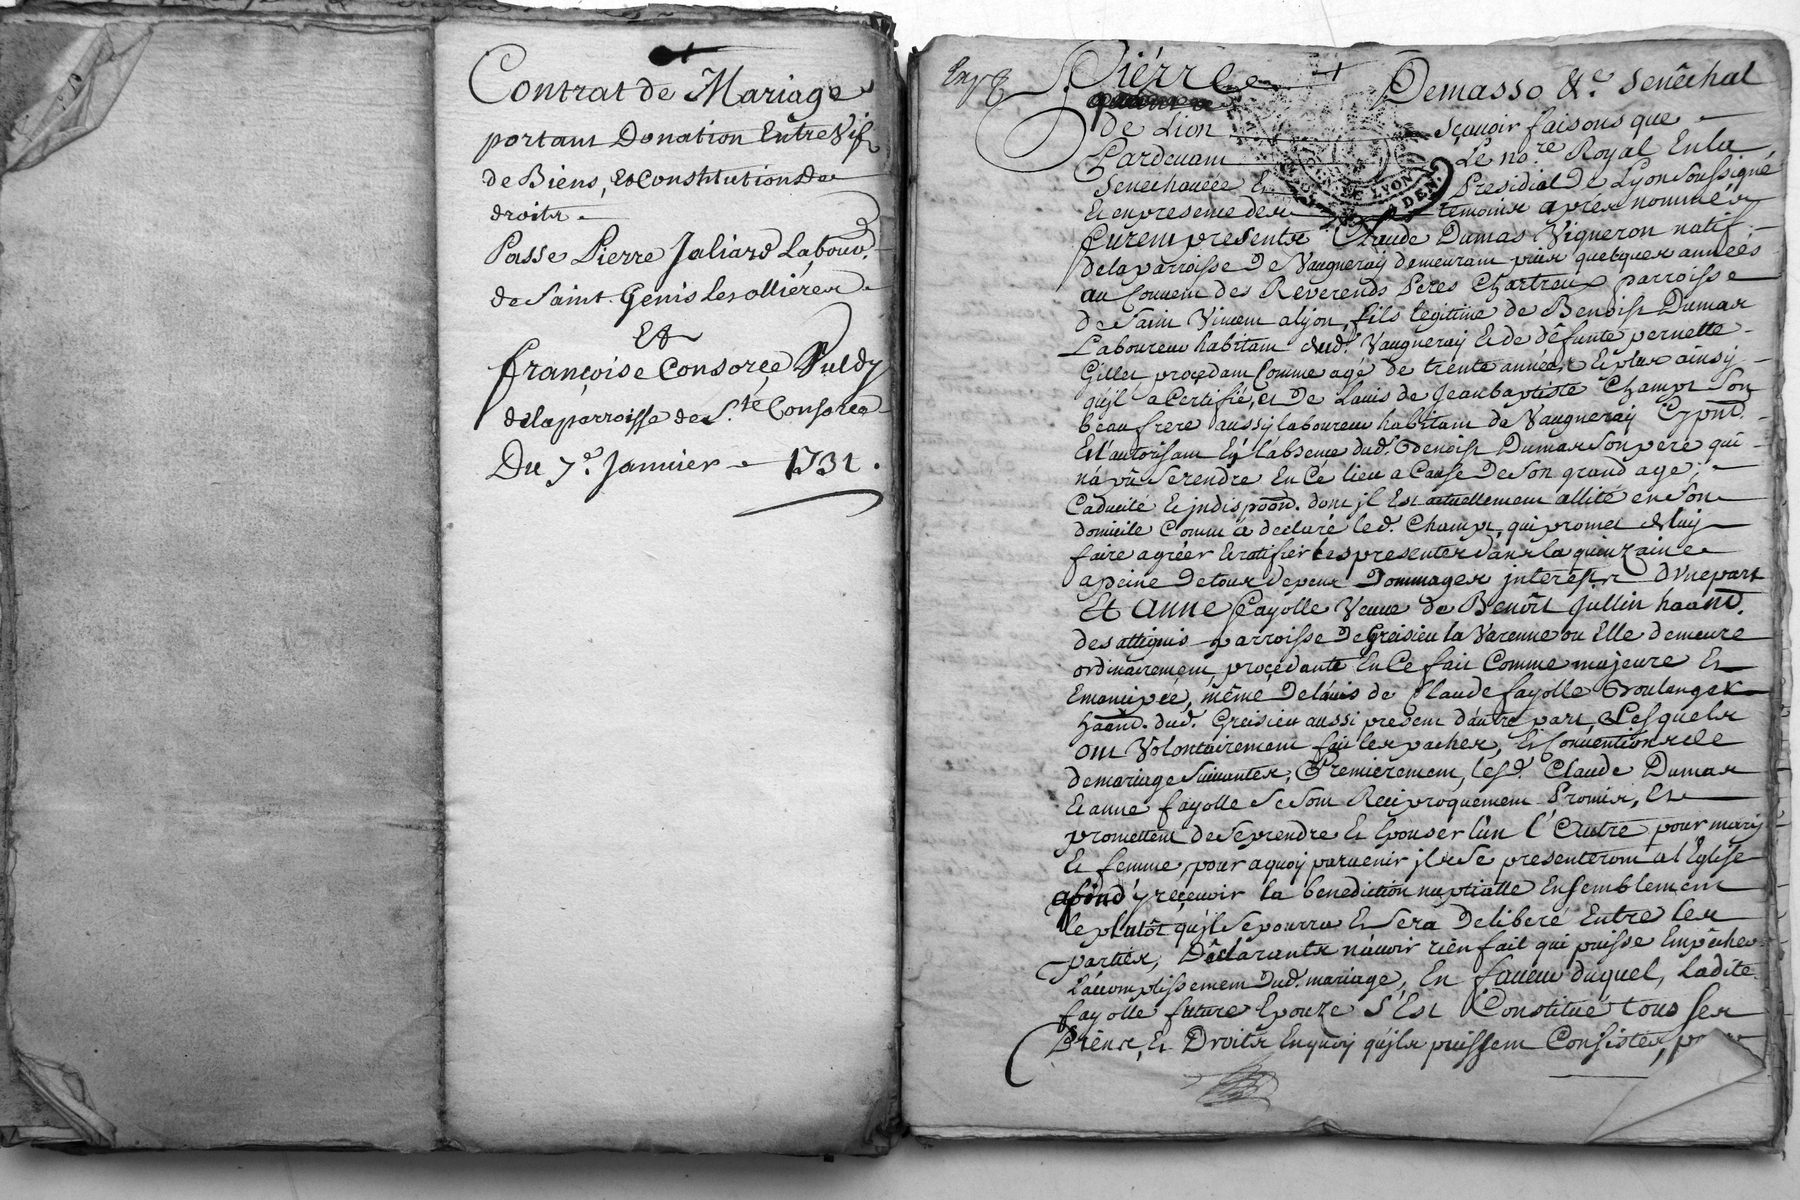 Contrat de Mariage
portant Donation Entre Vifs
de Biens, et Constitution de
droits
Passé Pierre Jaliard Labour.
de Saint Genis les ollières
Et
françoise Consorce Puldy
dela parroisse de Ste. Consorce
Du 7e. Janvier 1731.
Exp
Pierre Demasso &c. Senêchal
de Lion sçavoir faisons que
Pardevant Le nore. Royal En la
Senechaucée Et Presidial De Lyon Soussigné
Et en presence des temoins apres nommés
furent presents Claude Dumas Vigneron natif
dela parroisse De Vaugneray demeurant puis quelques années
au Couvent des Reverends Peres Chartreux parroisse
de Saint Vincent a lyon, fils legitime de Benoist Dumas
Laboureur habitant dud. Vaugneray Et de défunte pernette
Gillet procedant Comme agé de trente années Et plus ainsy
qu'jl a Certifié, et De L'avis de Jean baptiste Champt Son
beau frere aussy laboureur habitant de Vaugneray Cy pnt.
Et l'autorisant En l'absence dud. Benoist Dumas Son pere qui
n'a pû Se rendre En Ce lieu a Cause De Son grand age,
Caducité Et jndispoon. dont jl Est actuellement allité en Son
domicile Comm'a declaré led. Champt, qui promet de luy
faire agréer Et ratifier les presentes dans la quinzaine
a peine De tous depens Dommages jnterests D'une part
Et Anne fayolle Veuve de Benoît Jullin haant.
des attignis parroisse De Greisieu la Varenne ou Elle demeure
ordinairement, procedante En Ce fait Comme majeure Et
Emancipée, même De l'avis de Claude fayolle Boulanger
haant. dud. Greisieu aussi present d'autre part, Lesquels
ont Volontairement fait les paches, Et Conventions de
de mariage Suivantes, Premierement, lesd. Claude Dumas
Et anne fayolle Se Sont Reciproquement Promis, Et
promettent de Se prendre Et Epouser l'un l'Autre pour mary
Et femme, pour a quoy parvenir jls Se presenteront a l'Eglise
afind'y reçevoir la benediction nuptialle Ensemblement
le plutôt qu'jl Se pourra Et Sera Deliberé Entre les
parties, Déclarants n'avoir rien fait qui puisse Empêcher
L'accomplissement Dud. mariage, En faveur duquel, Ladite
fayolle future Epouze S'Est Constitué tous Ses
Biens, Et Droits En quoy qu'jls puissent Consister,